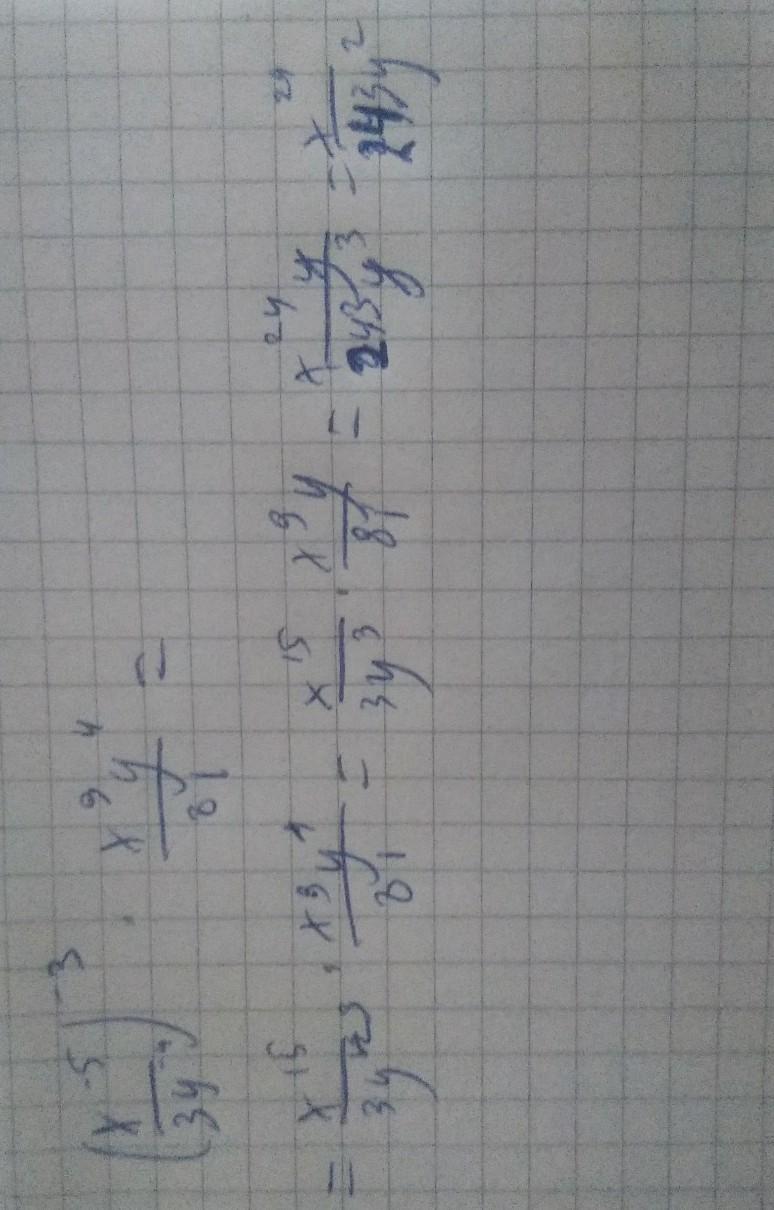 (x^-5 / 3y^-4)^-3 · x^9 y^4 / 81 =
= x^15 / 3y · x^9 y / 81 = x^15 / 3y^3 · x^9 y / 81 = x^24 y / 243y^3 = x^24 / 243y^2